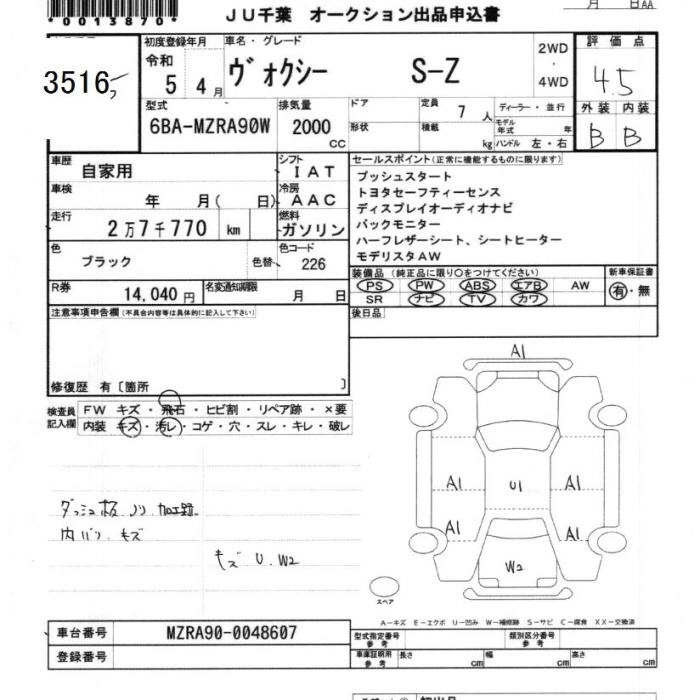 *0013870*
月 日AA
JU千葉 オークション出品申込書
3516
初度登録年月
令和
5 4月
車名・グレード
ヴォクシー S-Z
2WD
・
4WD
評価点
4.5
外装 内装
B B
型式
6BA-MZRA90W
排気量
2000
CC
ドア
形状
定員 7 人
積載 kg
ディーラー・並行
モデル年式 年
ハンドル 左・右
車歴
自家用
シフト
IAT
車検
年 月( 日)
冷房
AAC
走行
2万7千770 km
燃料
ガソリン
色
ブラック
色替
色コード
226
R券
14,040円
名変通知期限
月 日
セールスポイント(正常に機能するものに限ります)
プッシュスタート
トヨタセーフティーセンス
ディスプレイオーディオナビ
バックモニター
ハーフレザーシート、シートヒーター
モデリスタAW
装備品(純正品に限り○をつけてください)
PS PW ABS エアB AW
SR ナビ TV カワ
新車保証書
有・無
後日品
注意事項申告欄(不具合内容等は具体的に記入して下さい)
修復歴 有〔箇所 〕
検査員記入欄
FW キズ・飛石・ヒビ割・リペア跡・×要
内装 キズ・汚レ・コゲ・穴・スレ・キレ・破レ
ダッシュ板 ノリ 加工跡
内バリ キズ
キズ U W2
A1
A1
A1
U1
A1
A1
W2
スペア
A-キズ E-エクボ U-凹み W-補修跡 S-サビ C-腐食 XX-交換済
車台番号
MZRA90-0048607
登録番号
型式指定番号
参考
類別区分番号
参考
車庫証明用
参考
長さ cm
幅 cm
高さ cm